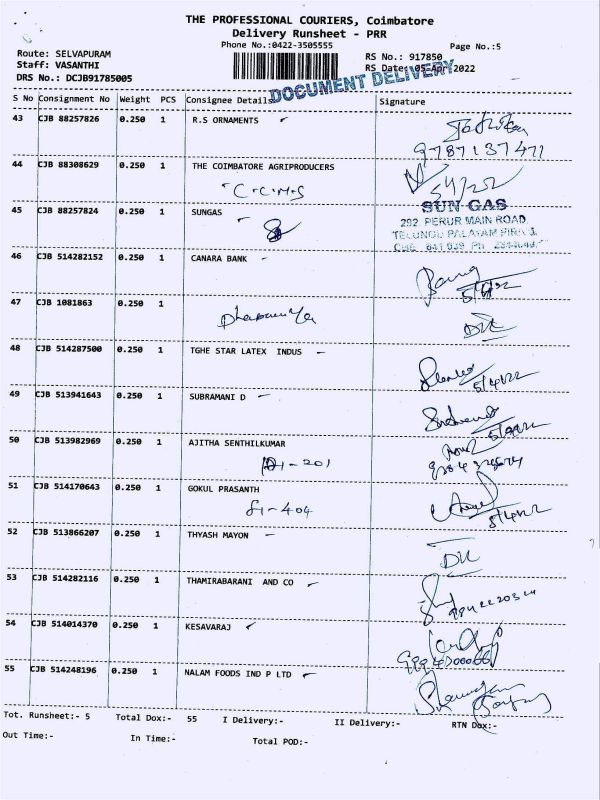 THE PROFESSIONAL COURIERS, Coimbatore
Delivery Runsheet - PRR
Phone No.:0422-3505555
Page No.:5
Route: SELVAPURAM
RS No.: 917850
Staff: VASANTHI
RS Date: 05-Apr-2022
DRS No.: DCJB91785005
DOCUMENT DELIVERY
S No Consignment No Weight PCS Consignee Details Signature
43 CJB 88257826 0.250 1 R.S ORNAMENTS
9787137471
44 CJB 88308629 0.250 1 THE COIMBATORE AGRIPRODUCERS
C.C.M.S 5/4/22
45 CJB 88257824 0.250 1 SUNGAS
SUN GAS
292 PERUR MAIN ROAD,
46 CJB 514282152 0.250 1 CANARA BANK
5/4/22
47 CJB 1081863 0.250 1
48 CJB 514287500 0.250 1 TGHE STAR LATEX INDUS
5/4/22
49 CJB 513941643 0.250 1 SUBRAMANI D
5/4/22
50 CJB 513982969 0.250 1 AJITHA SENTHILKUMAR
51 CJB 514170643 0.250 1 GOKUL PRASANTH
5/4/22
52 CJB 513866207 0.250 1 THYASH MAYON
53 CJB 514282116 0.250 1 THAMIRABARANI AND CO
54 CJB 514014370 0.250 1 KESAVARAJ
55 CJB 514248196 0.250 1 NALAM FOODS IND P LTD
Tot. Runsheet:- 5 Total Dox:- 55 I Delivery:- II Delivery:- RTN Dox:-
Out Time:- In Time:- Total POD:-